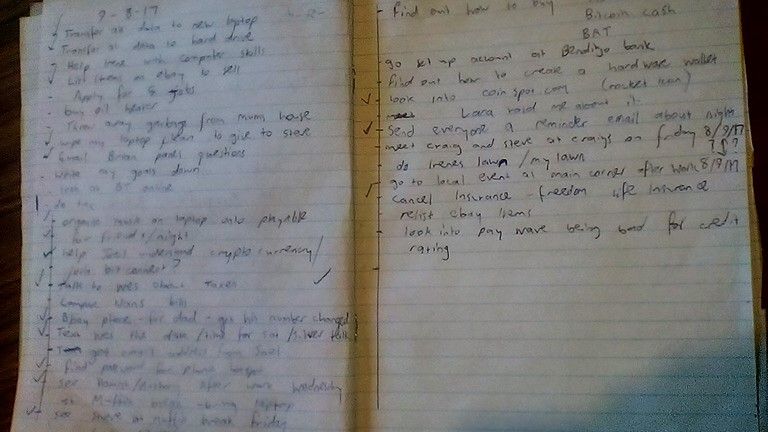 9-8-17
Transfer all data to new laptop
Transfer all data to hard drive
Help Irene with computer skills
List items on ebay to sell
Apply for 5 jobs
buy oil heater
Throw away garbage from mums house
wipe my laptop clean to give to steve
Email Brian panel questions
write my goals down
look at BT online
do tax
organise music on laptop onto playable
for friday/night
Help Joel understand crypto currency/
bit connect?
Talk to wes about
bill
Ebay phone - for dad - get his number changed
Text wes the date/time for
get email address from Joel
find password for phone
see after work Wednesday
see steve at break friday
find out how to buy Bitcoin cash
BAT
go set up account at Bendigo bank
find out how to create a hardware wallet
look into coinspot.com (rocket icon)
Lara told me about it
Send everyone a reminder email about night
meet craig and steve at craigs on friday 8/9/17
do Irenes lawn / my lawn
go to local event at main corner after work 8/9/17
cancel Insurance - freedom life Insurance
relist ebay items
look into pay wave being bad for credit
rating